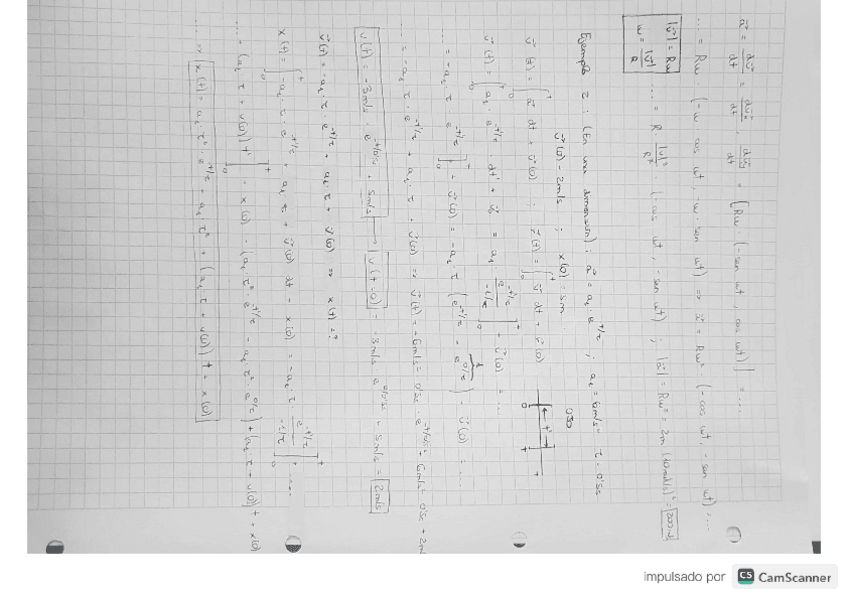 a⃗ = dv⃗/dt = dv⃗x/dt , dv⃗y/dt = [Rω · (-sen ωt , cos ωt)] = ...
... = Rω · (-ω cos ωt , -ω · sen ωt) ⇒ a⃗ = Rω² · (-cos ωt, -sen ωt) ...
|v⃗| = Rω ... = R |v⃗|²/R² (-cos ωt, -sen ωt) ; |a⃗| = Rω² = 2m (10 rad/s)² =
ω = |v⃗|/R
Ejemplo 2 : (En una dimensión) : a⃗ = a₁ · e^-t/τ ; a₁ = 6m/s² τ = 0'5s
v⃗(0) = 2m/s ; x(0) = 5m
v⃗(t) = ∫₀ᵗ a⃗ dt + v⃗(0) ;
v⃗(t) = ∫₀ᵗ a₁ · e^-t/τ dt' + v⃗₀ = a₁ · e^-t/τ / -1/τ ]₀ᵗ + v⃗(0) = ...
... = -a₁ · τ · e^-t/τ ]₀ᵗ + v⃗(0) = -a₁ · τ (e^-t/τ - e^0/τ) - v⃗(0) = ...
... = -a₁ · τ · e^-t/τ + a₁ · τ + v⃗(0) ⇒ v⃗(t) = -6m/s² · 0'5s · e^-t/0'5s + 6m/s² · 0'5s + 2m
v(t) = -3m/s · e^-t/0'5s + 5m/s → v(t=0) = -3m/s · e^0/0'5s + 5m/s = 2m/s
v⃗(t) = -a₁ · τ · e^-t/τ + a₁ · τ + v⃗(0) ⇒ x(t) = ?
x(t) = ∫₀ᵗ -a₁ · τ · e^-t/τ + a₁ · τ + v⃗(0) dt - x(0) = -a₁ · τ · e^-t/τ / -1/τ ]₀ᵗ + ...
... + (a₁ · τ + v(0)) t ]₀ᵗ + x(0) = (a₁ · τ² · e^-t/τ - a₁ · τ² · e^0/τ) + (a₁ · τ + v(0)) t + x(0)
... ⇒ x(t) = a₁ · τ² · e^-t/τ - a₁ · τ² + (a₁ · τ + v(0)) t + x(0)
impulsado por CS CamScanner